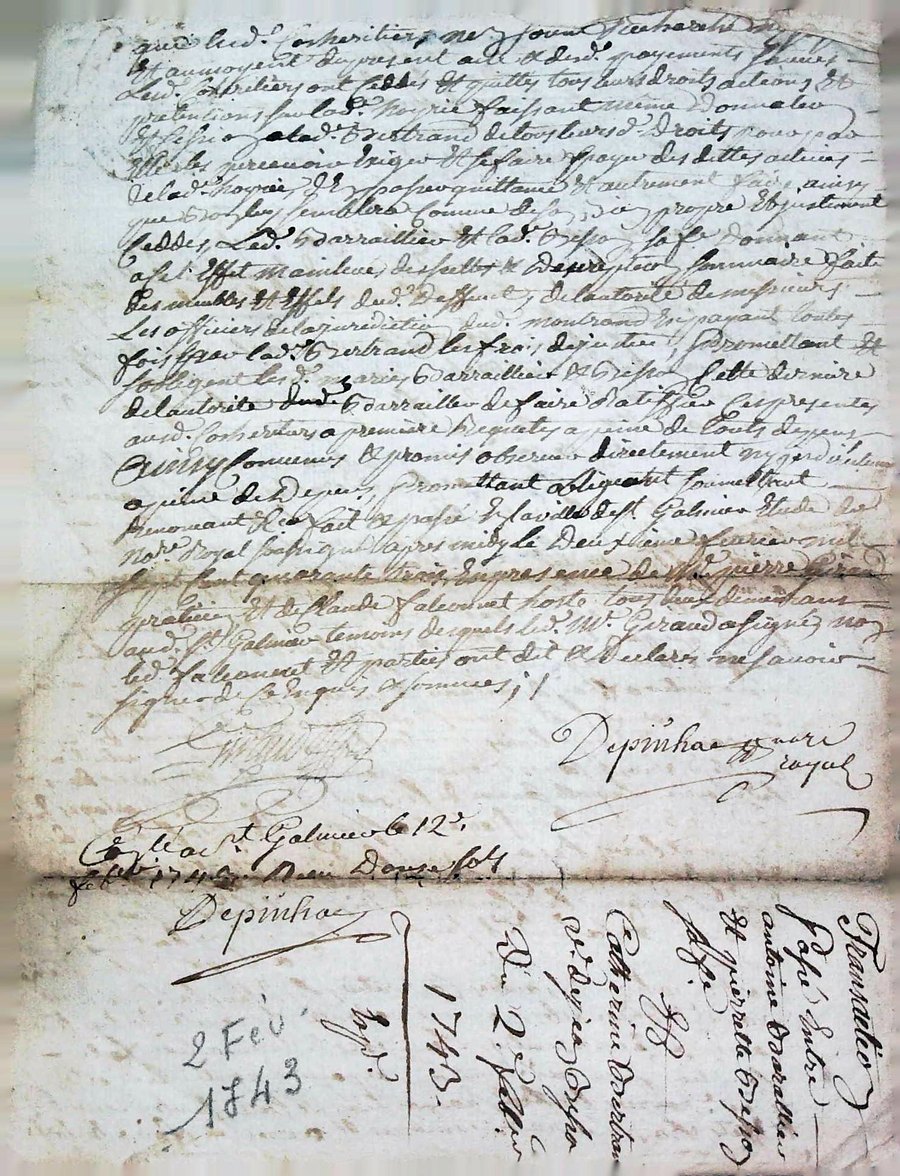 que lesd. Coheritiers ne
Et au moyen du present acte & desd. payements
Lesd. heritiers ont Ceddés Et quittes tous leurs droits actions Et
pretentions sur lad. hoyrie faissant même
Et a lad. Bertrand de tous leursd. Droits pour par
Elle les percevoir Exiger Et se faire payer des dettes actives
de lad. hoyrie & passer quittance Et autrement faire ainsy
que bon luy semblera Comme de sa propre Et justement
Ceddés Led. Barraillier Et lad. sa fe. donnant
a cet Effet mainlevée & Description Sommaire faite
des meubles Et Effets dud. Deffunt de l'autorité de messieurs
Les officiers de la jurediction dud. montrond En payant toutes
fois par lad. Bertrand les frais de justice, promettant Et
sobligent les d. mariés Barraillier & Cette derniere
de l'autorité dud. Barraillier de faire Ratiffier Ces presentes
ausd. Coheritiers a premiere Requete a peine de touts depens
Ainsy Convenus & promis observer directement ny
a peine de Depens, promettant obligeant soumettant
Renoncant &ca fait & passé En la ville de St. Galmier Etude du
nore. Royal apres midy le Deuxieme fevrier mil
sept Cent quarante trois, En presence de Me. pierre Girand
praticien Et de Claude falconnet hoste tous deux demeurans
aud. St. Galmier temoins desquels led. Me. Giraud a signé non
led. falconnet Et parties ont dit & Declaré ne savoir
signer de Ce Enquis & sommés ;/
Depinhac nore
royal
Cllé a St. Galmier le 12e.
feb. 1743 Reçu Douze sols
Depinhac
Transaction
Passé Entre
antoine Baraillier
Et pierrette
sa fe.
Et
Catherine Bertrand
Du 2. febvr.
1743.
Expd.
2 Fév.
1743